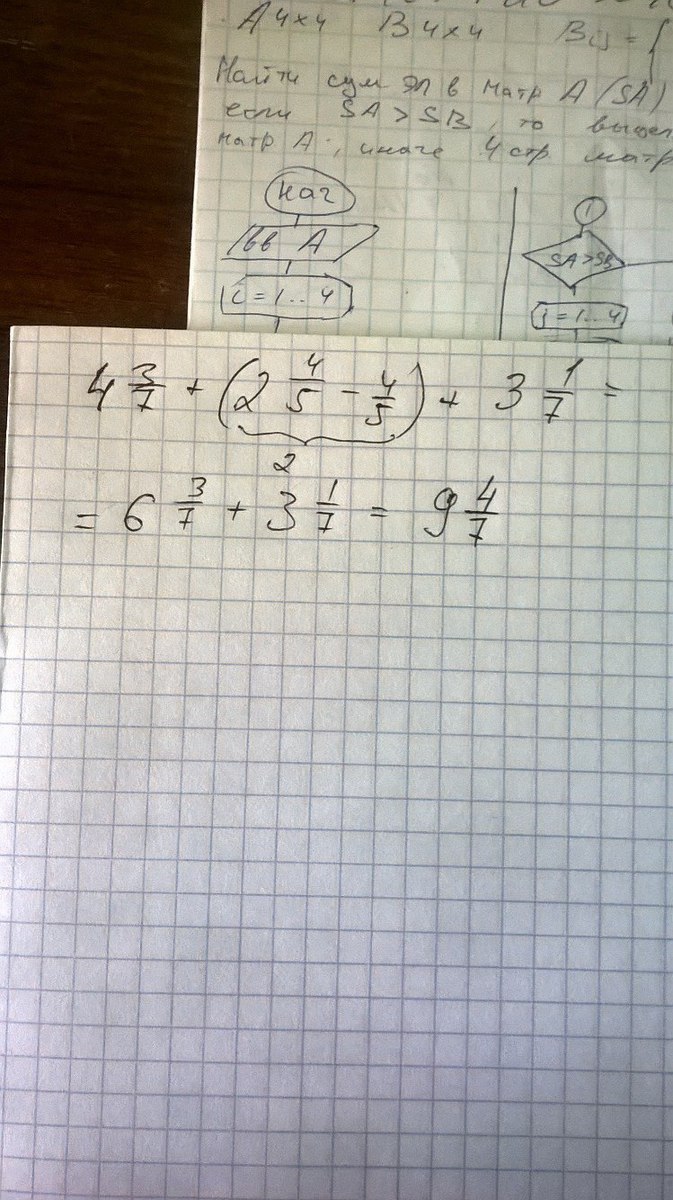 A 4×4 B 4×4 Bij = {
Найти сум эл в матр A (SA)
если SA > SB, то
матр A, иначе 4 стр матр
нач
вв A
i = 1..4
1
SA > SB
i = 1..4
4 3/7 + (2 4/5 - 4/5) + 3 1/7 =
2
= 6 3/7 + 3 1/7 = 9 4/7